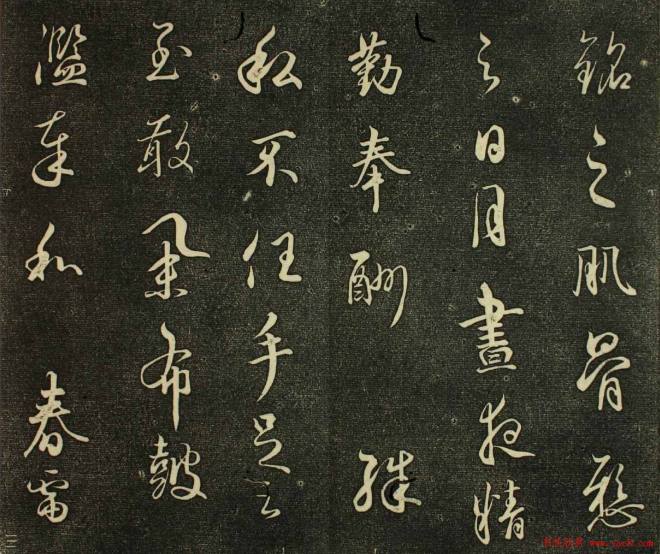 銘之肌骨懸
之日月晝夜精
勤奉酬 殊
私不任手足之
至敢布鼓
濫奉和 春雷
www.yac8.com